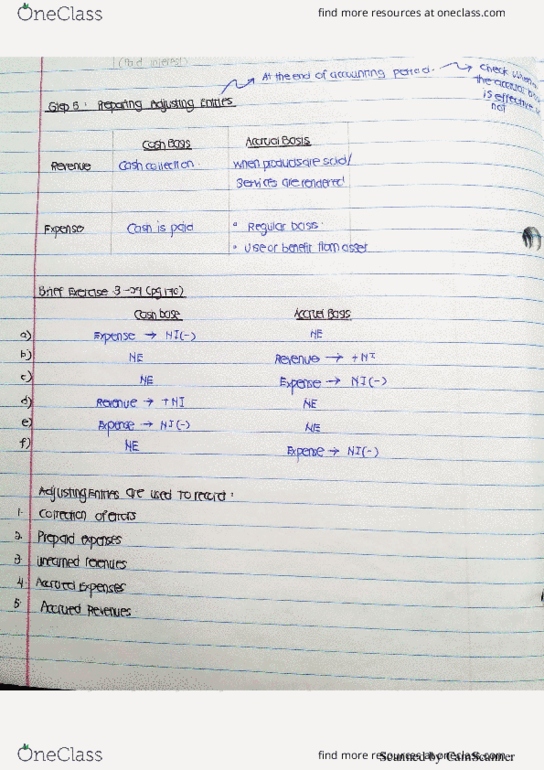 OneClass
find more resources at oneclass.com
At the end of accounting period.
check when
the accrual
is effective
not
Step 5 : Preparing Adjusting Entries
Cash Basis
Accrual Basis
Revenue
Cash collection.
when products are sold/
services are rendered
Expense
Cash is paid
• Regular basis.
• Use or benefit from asset
Brief Exercise 3-29 (pg 170)
Cash base
Accrual Basis
a) Expense → NI(-) NE
b) NE Revenue → +NI
c) NE Expense → NI(-)
d) Revenue → +NI NE
e) Expense → NI(-) NE
f) NE Expense → NI(-)
Adjusting Entries are used to record :
1. Correction of errors
2. Prepaid expenses
3. unearned revenues
4. Accrued Expenses
5. Accrued Revenues
OneClass
find more resources at oneclass.com
Scanned by CamScanner